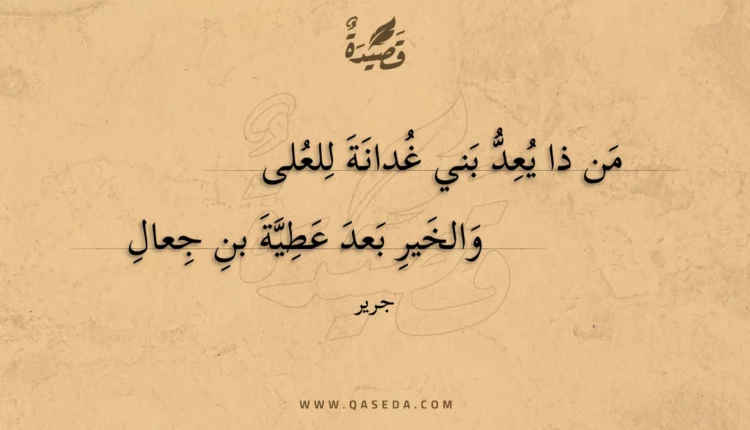 قَصِيدَةٌ
مَن ذا يُعِدُّ بَني غُدانَةَ لِلعُلى
وَالخَيرِ بَعدَ عَطِيَّةَ بنِ جِعالِ
جرير
WWW.QASEDA.COM